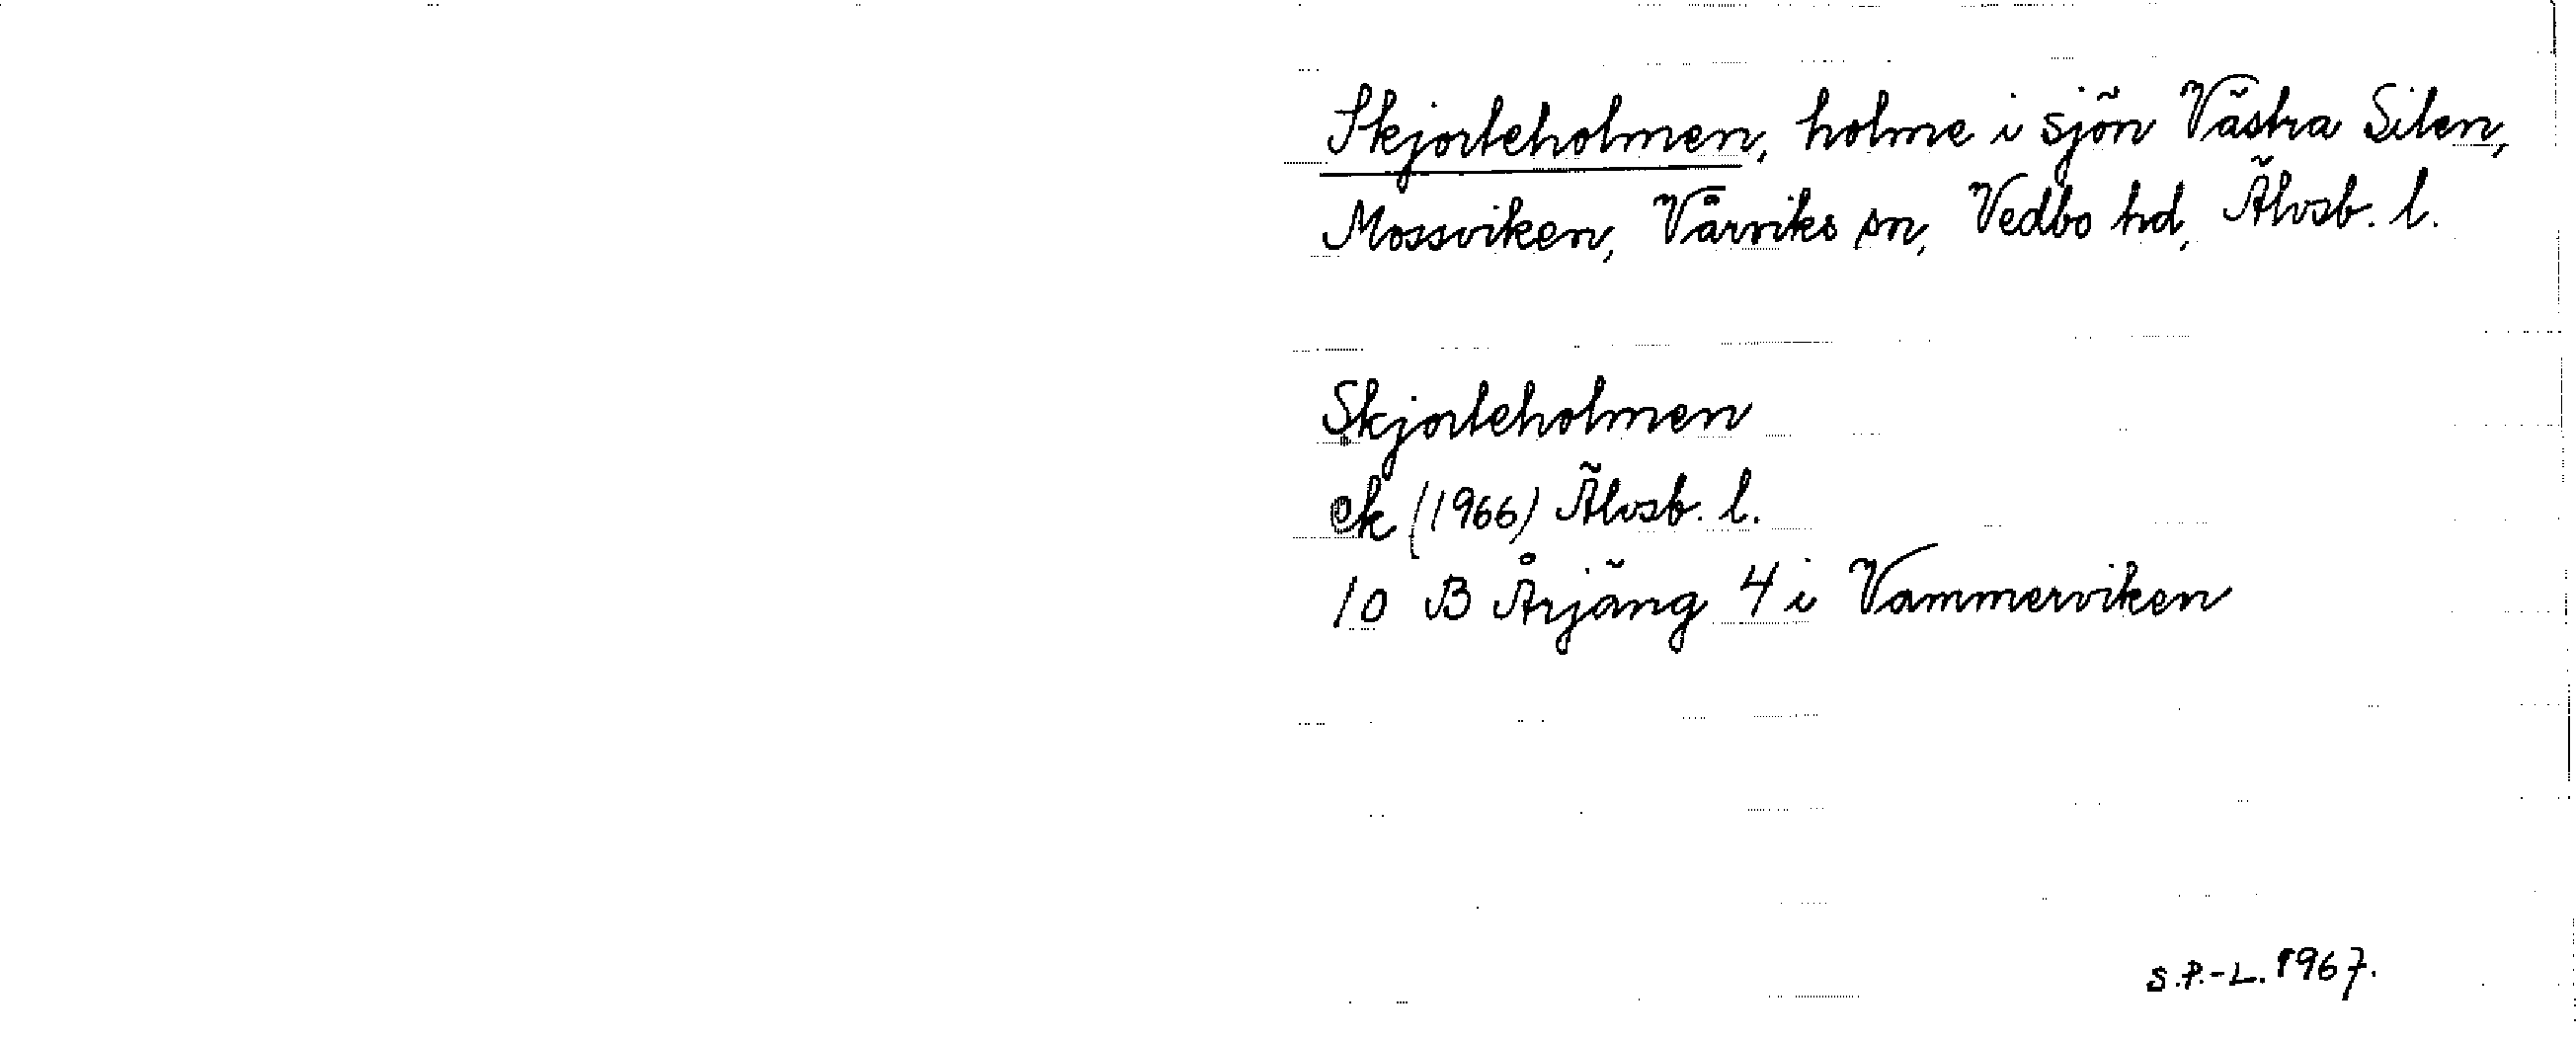 Skjorteholmen, holme i sjön Västra Silen,
Mossviken, Vårviks sn, Vedbo hd, Älvsb. l.
Skjorteholmen
ek (1966) Älvsb. l.
10 B Årjäng 4 i Vammerviken
S.P.-L. 1967.